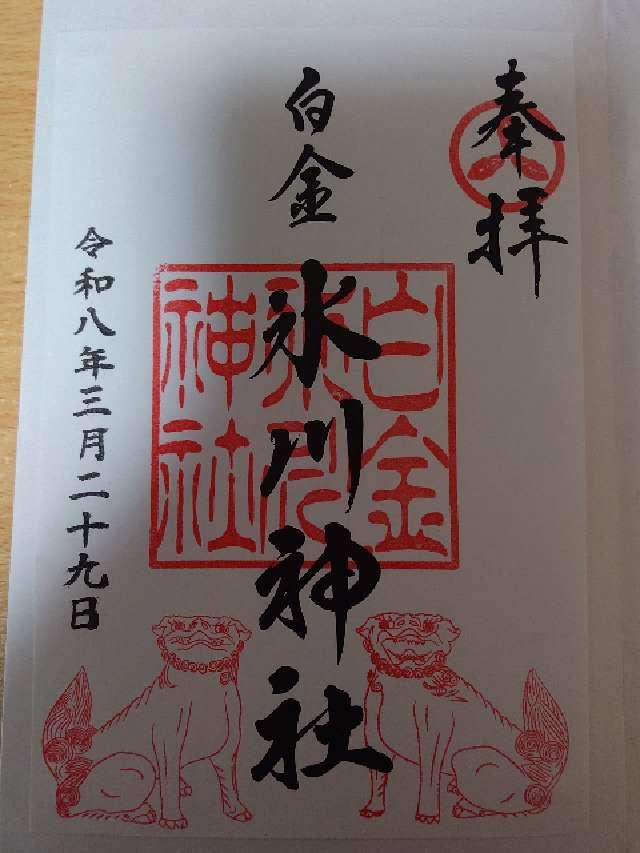 奉拝
白金 氷川神社
白金
氷川
神社
令和八年三月二十九日